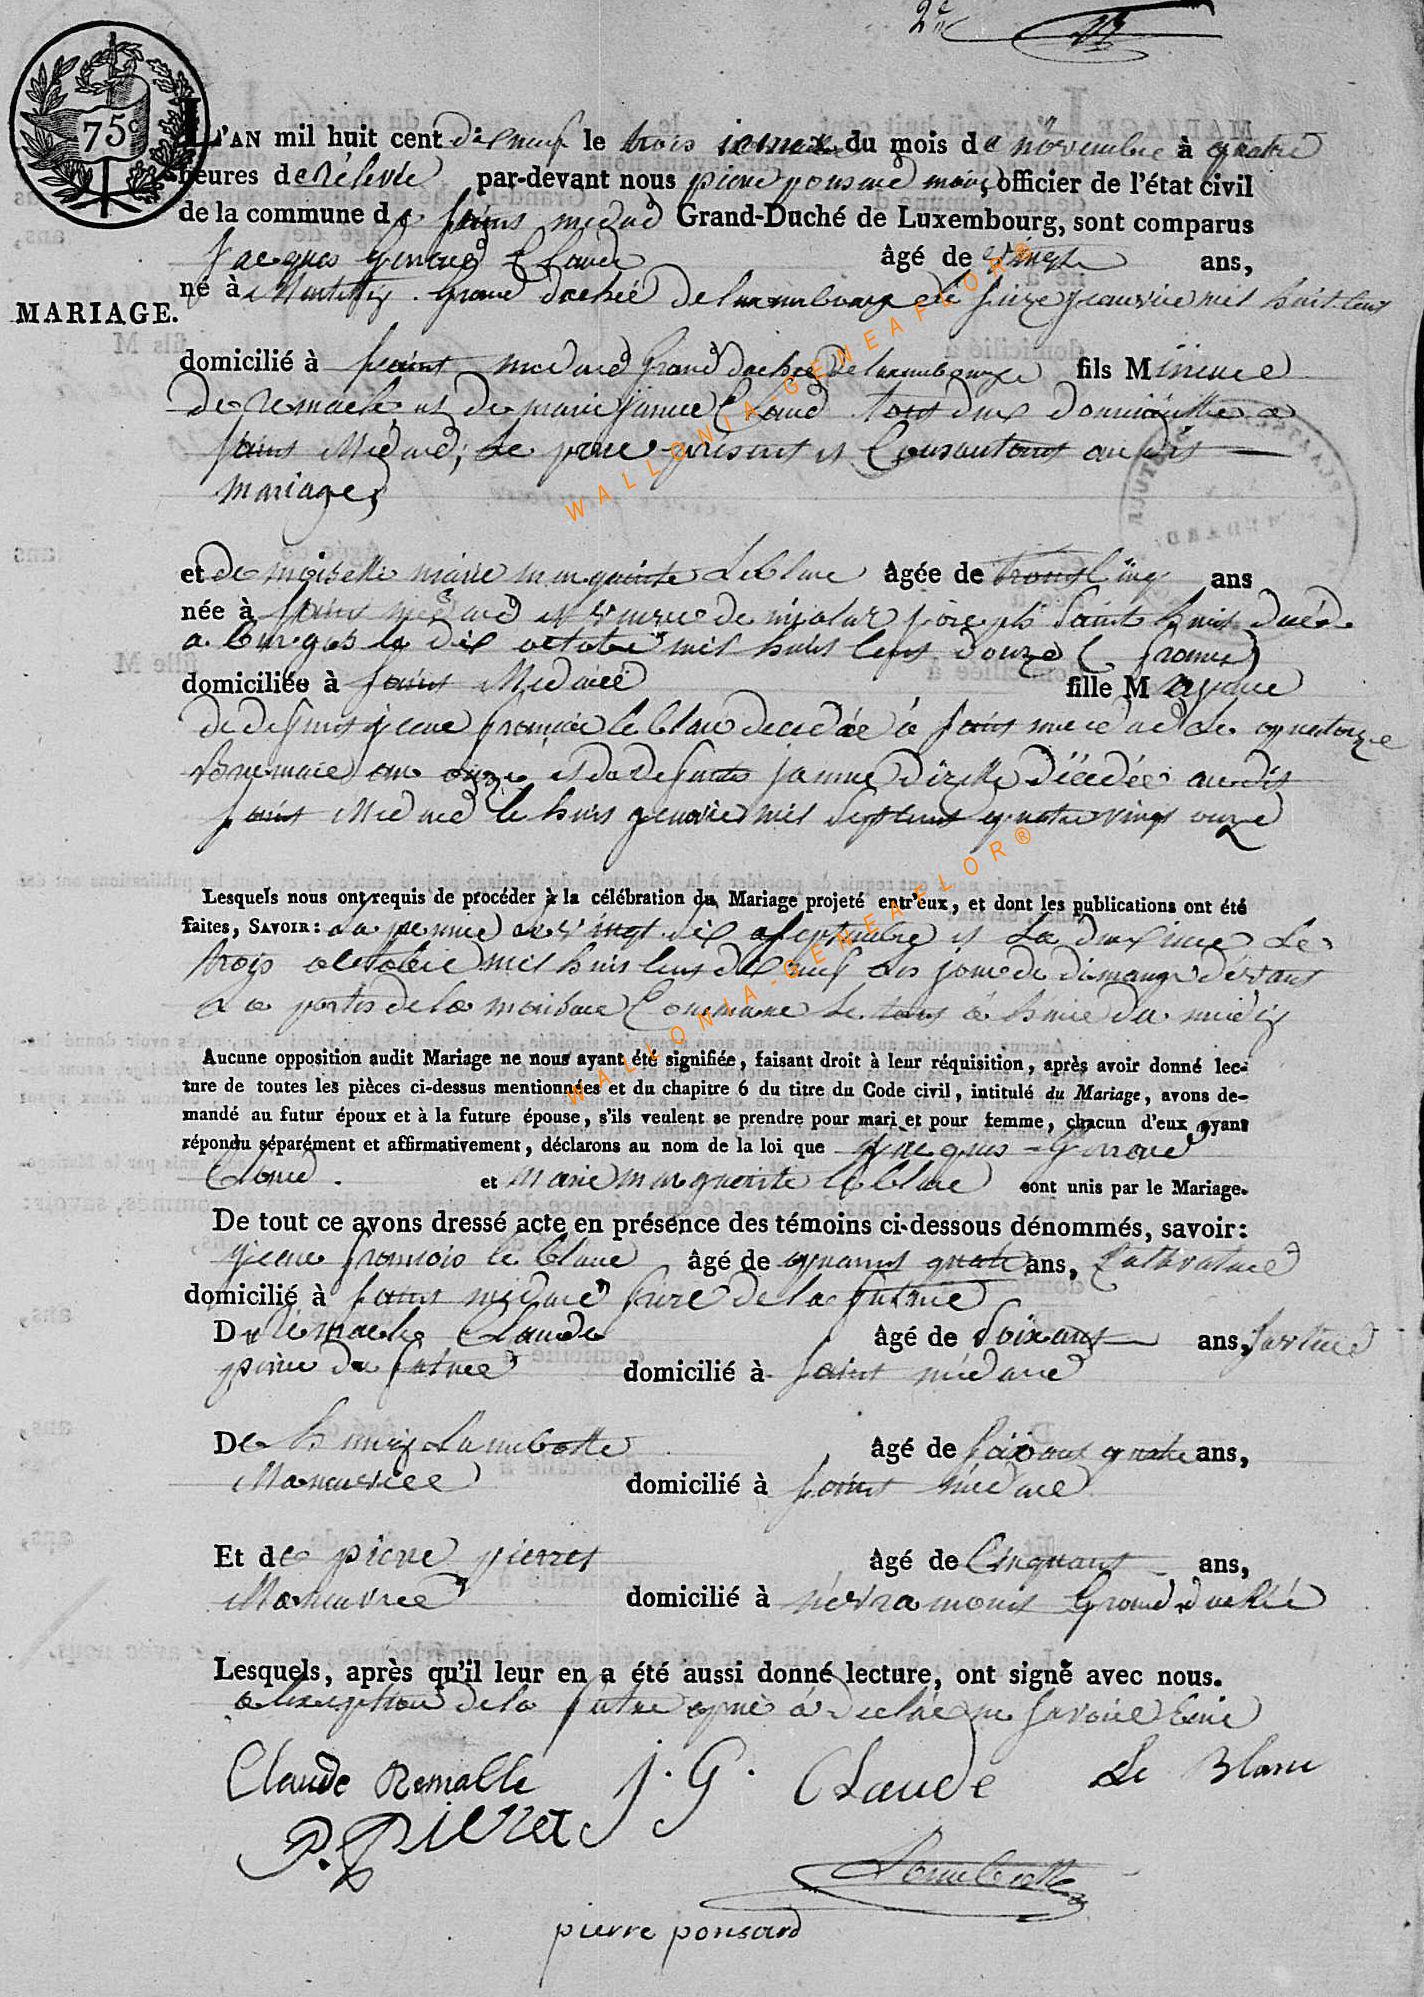 2e
75c
L'AN mil huit cent dix neuf le trois du mois de novembre à quatre
heures de rélevée par-devant nous pierre ponsard maire officier de l'état civil
de la commune de saint medard Grand-Duché de Luxembourg, sont comparus
Jacques Gerard Claude âgé de vingt ans,
MARIAGE.
né à Martilly Grand duchée de luxembourg le seize janvier mil huit cent
domicilié à saint medard Grand duchée de luxembourg fils Mineure
de remacle et de marie janne Claud tous deux domicilie a
saint Médard, Le pere présent et Consantant au dit
mariage,
et demoiselle marie marguerite Leblanc âgée de trante Cinq ans
née à saint medard et veuve de nicolas joseph Saint huit
a burgos le dix octobre mil huit Cent douze (
domiciliée à saint Medard fille Majeure
de defunt jean francois le blanc decedée à saint medard le quatorze
an onze et de defunte janne décedée audit
saint Medard le huit janvier mil Septcent quatre vingt onze
Lesquels nous ont requis de procéder à la célébration du Mariage projeté entr'eux, et dont les publications ont été
faites, SAVOIR: La le vingt six septembre et La deuxieme Le
trois octobre mil huit Cent dix neuf des jour de dimange dévant
La porte de la maison Commune Le tout à heure du midi
Aucune opposition audit Mariage ne nous ayant été signifiée, faisant droit à leur réquisition, après avoir donné lec-
ture de toutes les pièces ci-dessus mentionnées et du chapitre 6 du titre du Code civil, intitulé du Mariage, avons de-
mandé au futur époux et à la future épouse, s'ils veulent se prendre pour mari et pour femme, chacun d'eux ayant
répondu séparément et affirmativement, déclarons au nom de la loi que Jacques Gerard
Claude et Marie marguerite le blanc sont unis par le Mariage.
De tout ce avons dressé acte en présence des témoins ci-dessous dénommés, savoir:
jean fransois le blanc âgé de quarant quatre ans, Cultivateur
domicilié à saint medard frere de la future
De Remacle Claude âgé de Soixant ans,
pere du futur domicilié à saint médard
De henry Lambotte âgé de soixant quatre ans,
Maneuvree domicilié à saint médard
Et de pierre pierret âgé de Cinquant ans,
Maneuvree domicilié à névramont Grand duchée
Lesquels, après qu'il leur en a été aussi donné lecture, ont signé avec nous.
a lexeption de la future qui à declaré ne savoir
Claude Remacle J. G. Claude Le Blanc
P. Pierret
Lambotte
pierre ponsard
WALLONIA-GENEAFLOR®
WALLONIA-GENEAFLOR®